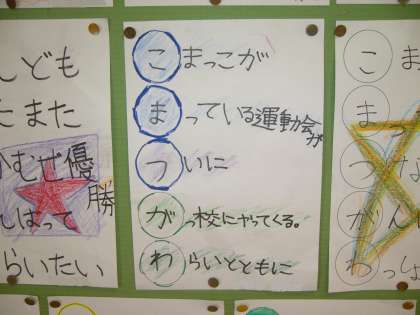 ども
たまた
かむぜ優勝
んばって
らいたい
こまっこが
まっている運動会が
ついに
がっ校にやってくる。
わらいとともに
こま
まっ
つな
がん
わっしょ